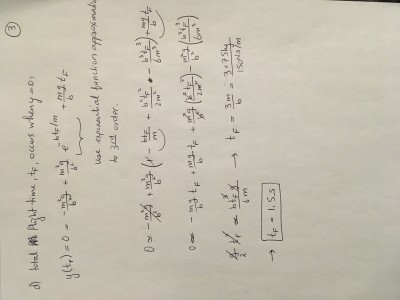 ③
d) total flight time, t_F, occurs when y=0:
y(t_F) = 0 = -m²g/b² + m²g/b² e^(-bt_F/m) + mg/b t_F
use exponential function approximation
to 3rd order.
0 ≈ -m²g/b² + m²g/b² (1 - bt_F/m + b²t_F²/2m² - b³t_F³/6m³) + mg/b t_F
0 ≈ -mg/b t_F + mg/b t_F + m²g/b² (b²t_F²/2m²) - m²g/b² (b³t_F³/6m³)
g/2 t_F² ≈ bt_F³g/6m → t_F = 3m/b = 3×75kg/150kg/s
→ t_F = 1.5s